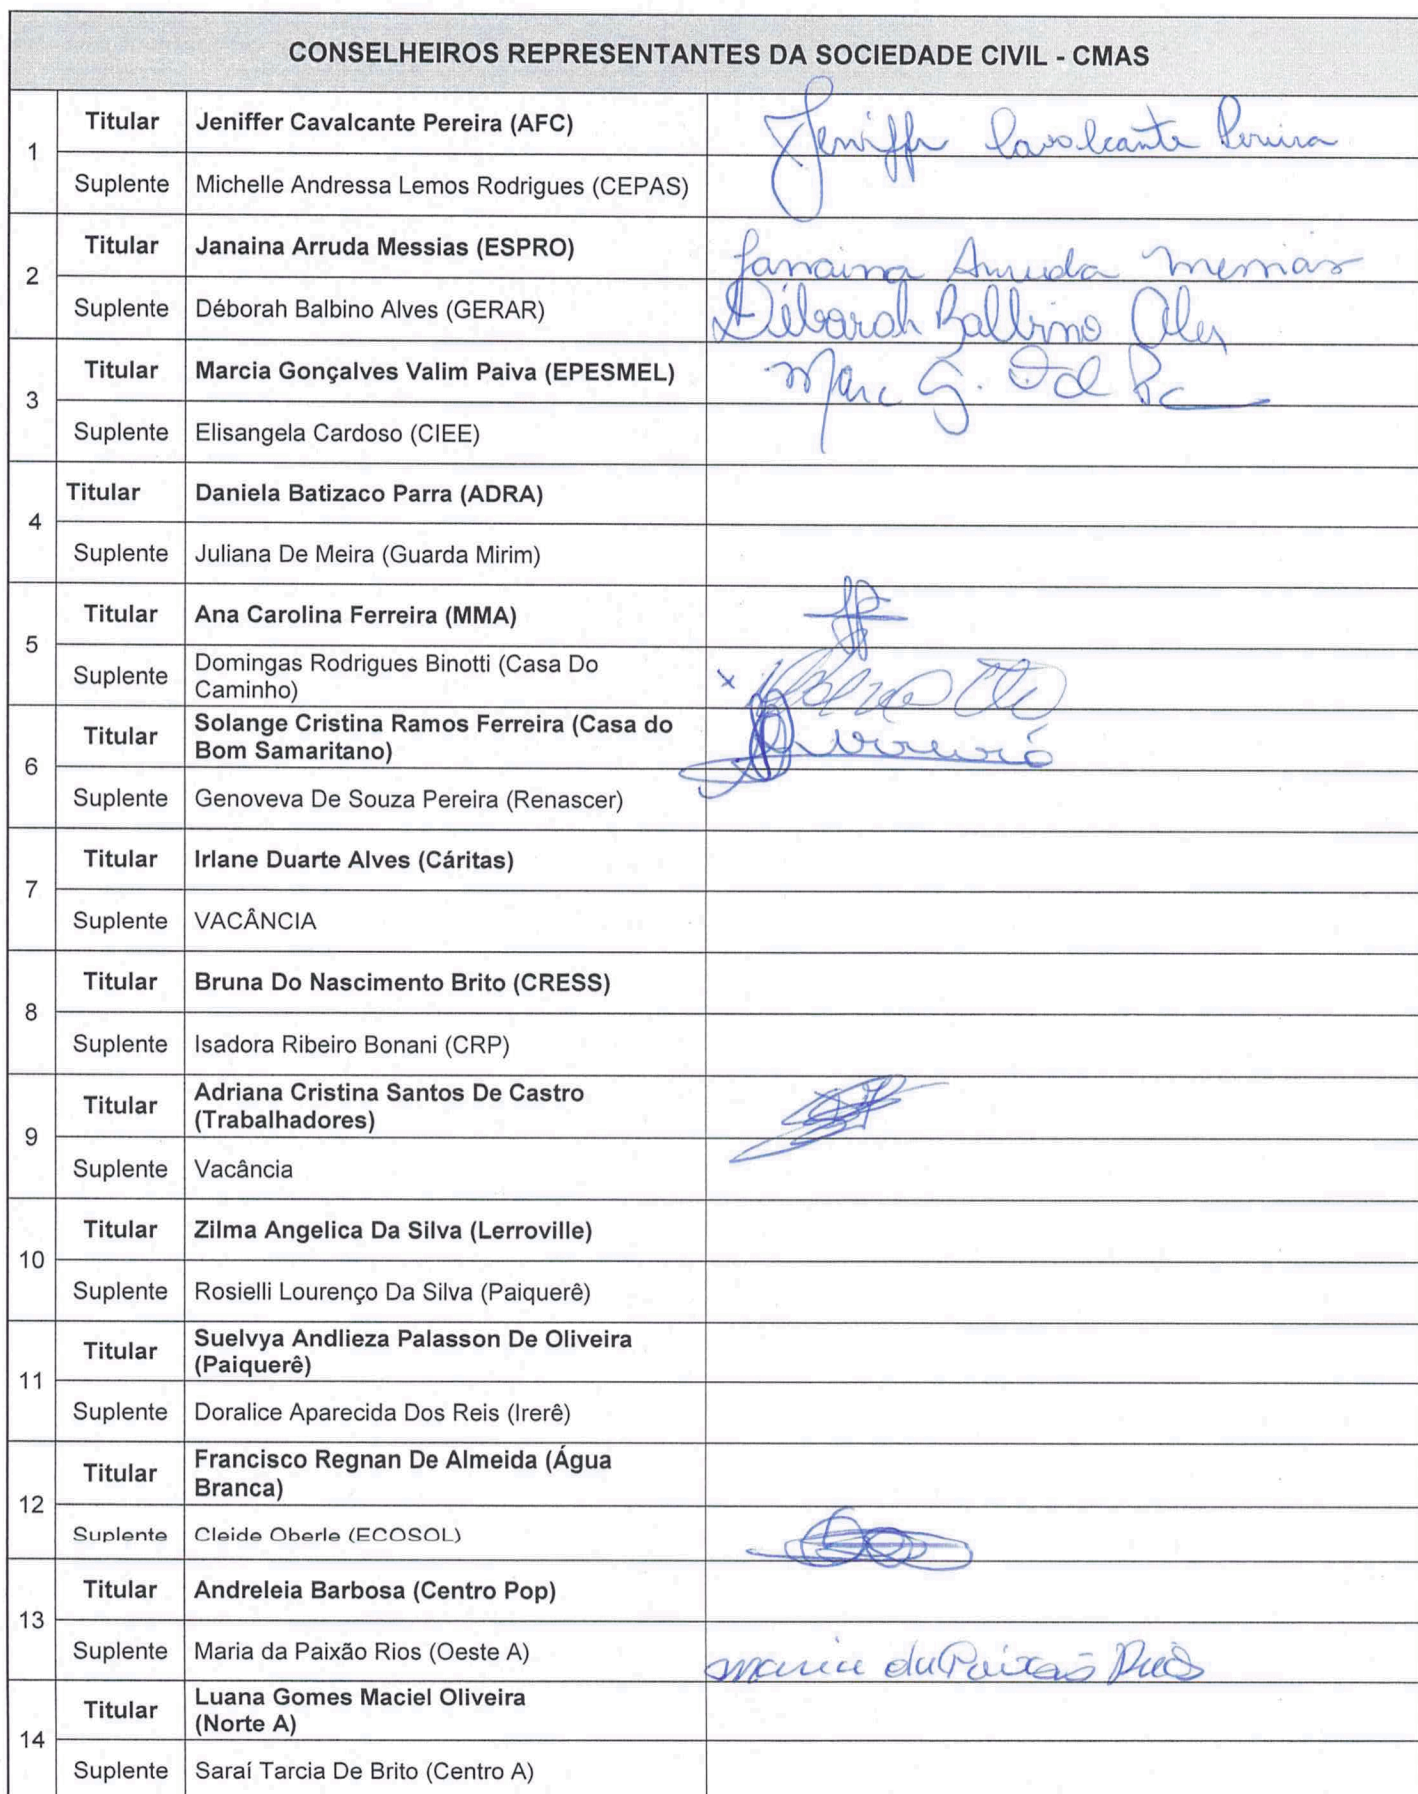 CONSELHEIROS REPRESENTANTES DA SOCIEDADE CIVIL - CMAS
1
Titular Jeniffer Cavalcante Pereira (AFC) Jeniffer Cavalcante Pereira
Suplente Michelle Andressa Lemos Rodrigues (CEPAS)
2
Titular Janaina Arruda Messias (ESPRO) Janaina Arruda Messias
Suplente Déborah Balbino Alves (GERAR) Déborah Balbino Alves
3
Titular Marcia Gonçalves Valim Paiva (EPESMEL)
Suplente Elisangela Cardoso (CIEE)
4
Titular Daniela Batizaco Parra (ADRA)
Suplente Juliana De Meira (Guarda Mirim)
5
Titular Ana Carolina Ferreira (MMA)
Suplente Domingas Rodrigues Binotti (Casa Do
Caminho) x
6
Titular Solange Cristina Ramos Ferreira (Casa do
Bom Samaritano)
Suplente Genoveva De Souza Pereira (Renascer)
7
Titular Irlane Duarte Alves (Cáritas)
Suplente VACÂNCIA
8
Titular Bruna Do Nascimento Brito (CRESS)
Suplente Isadora Ribeiro Bonani (CRP)
9
Titular Adriana Cristina Santos De Castro
(Trabalhadores)
Suplente Vacância
10
Titular Zilma Angelica Da Silva (Lerroville)
Suplente Rosielli Lourenço Da Silva (Paiquerê)
11
Titular Suelvya Andlieza Palasson De Oliveira
(Paiquerê)
Suplente Doralice Aparecida Dos Reis (Irerê)
12
Titular Francisco Regnan De Almeida (Água
Branca)
Suplente Cleide Oberle (ECOSOL)
13
Titular Andreleia Barbosa (Centro Pop)
Suplente Maria da Paixão Rios (Oeste A) Maria da Paixão Rios
14
Titular Luana Gomes Maciel Oliveira
(Norte A)
Suplente Saraí Tarcia De Brito (Centro A)